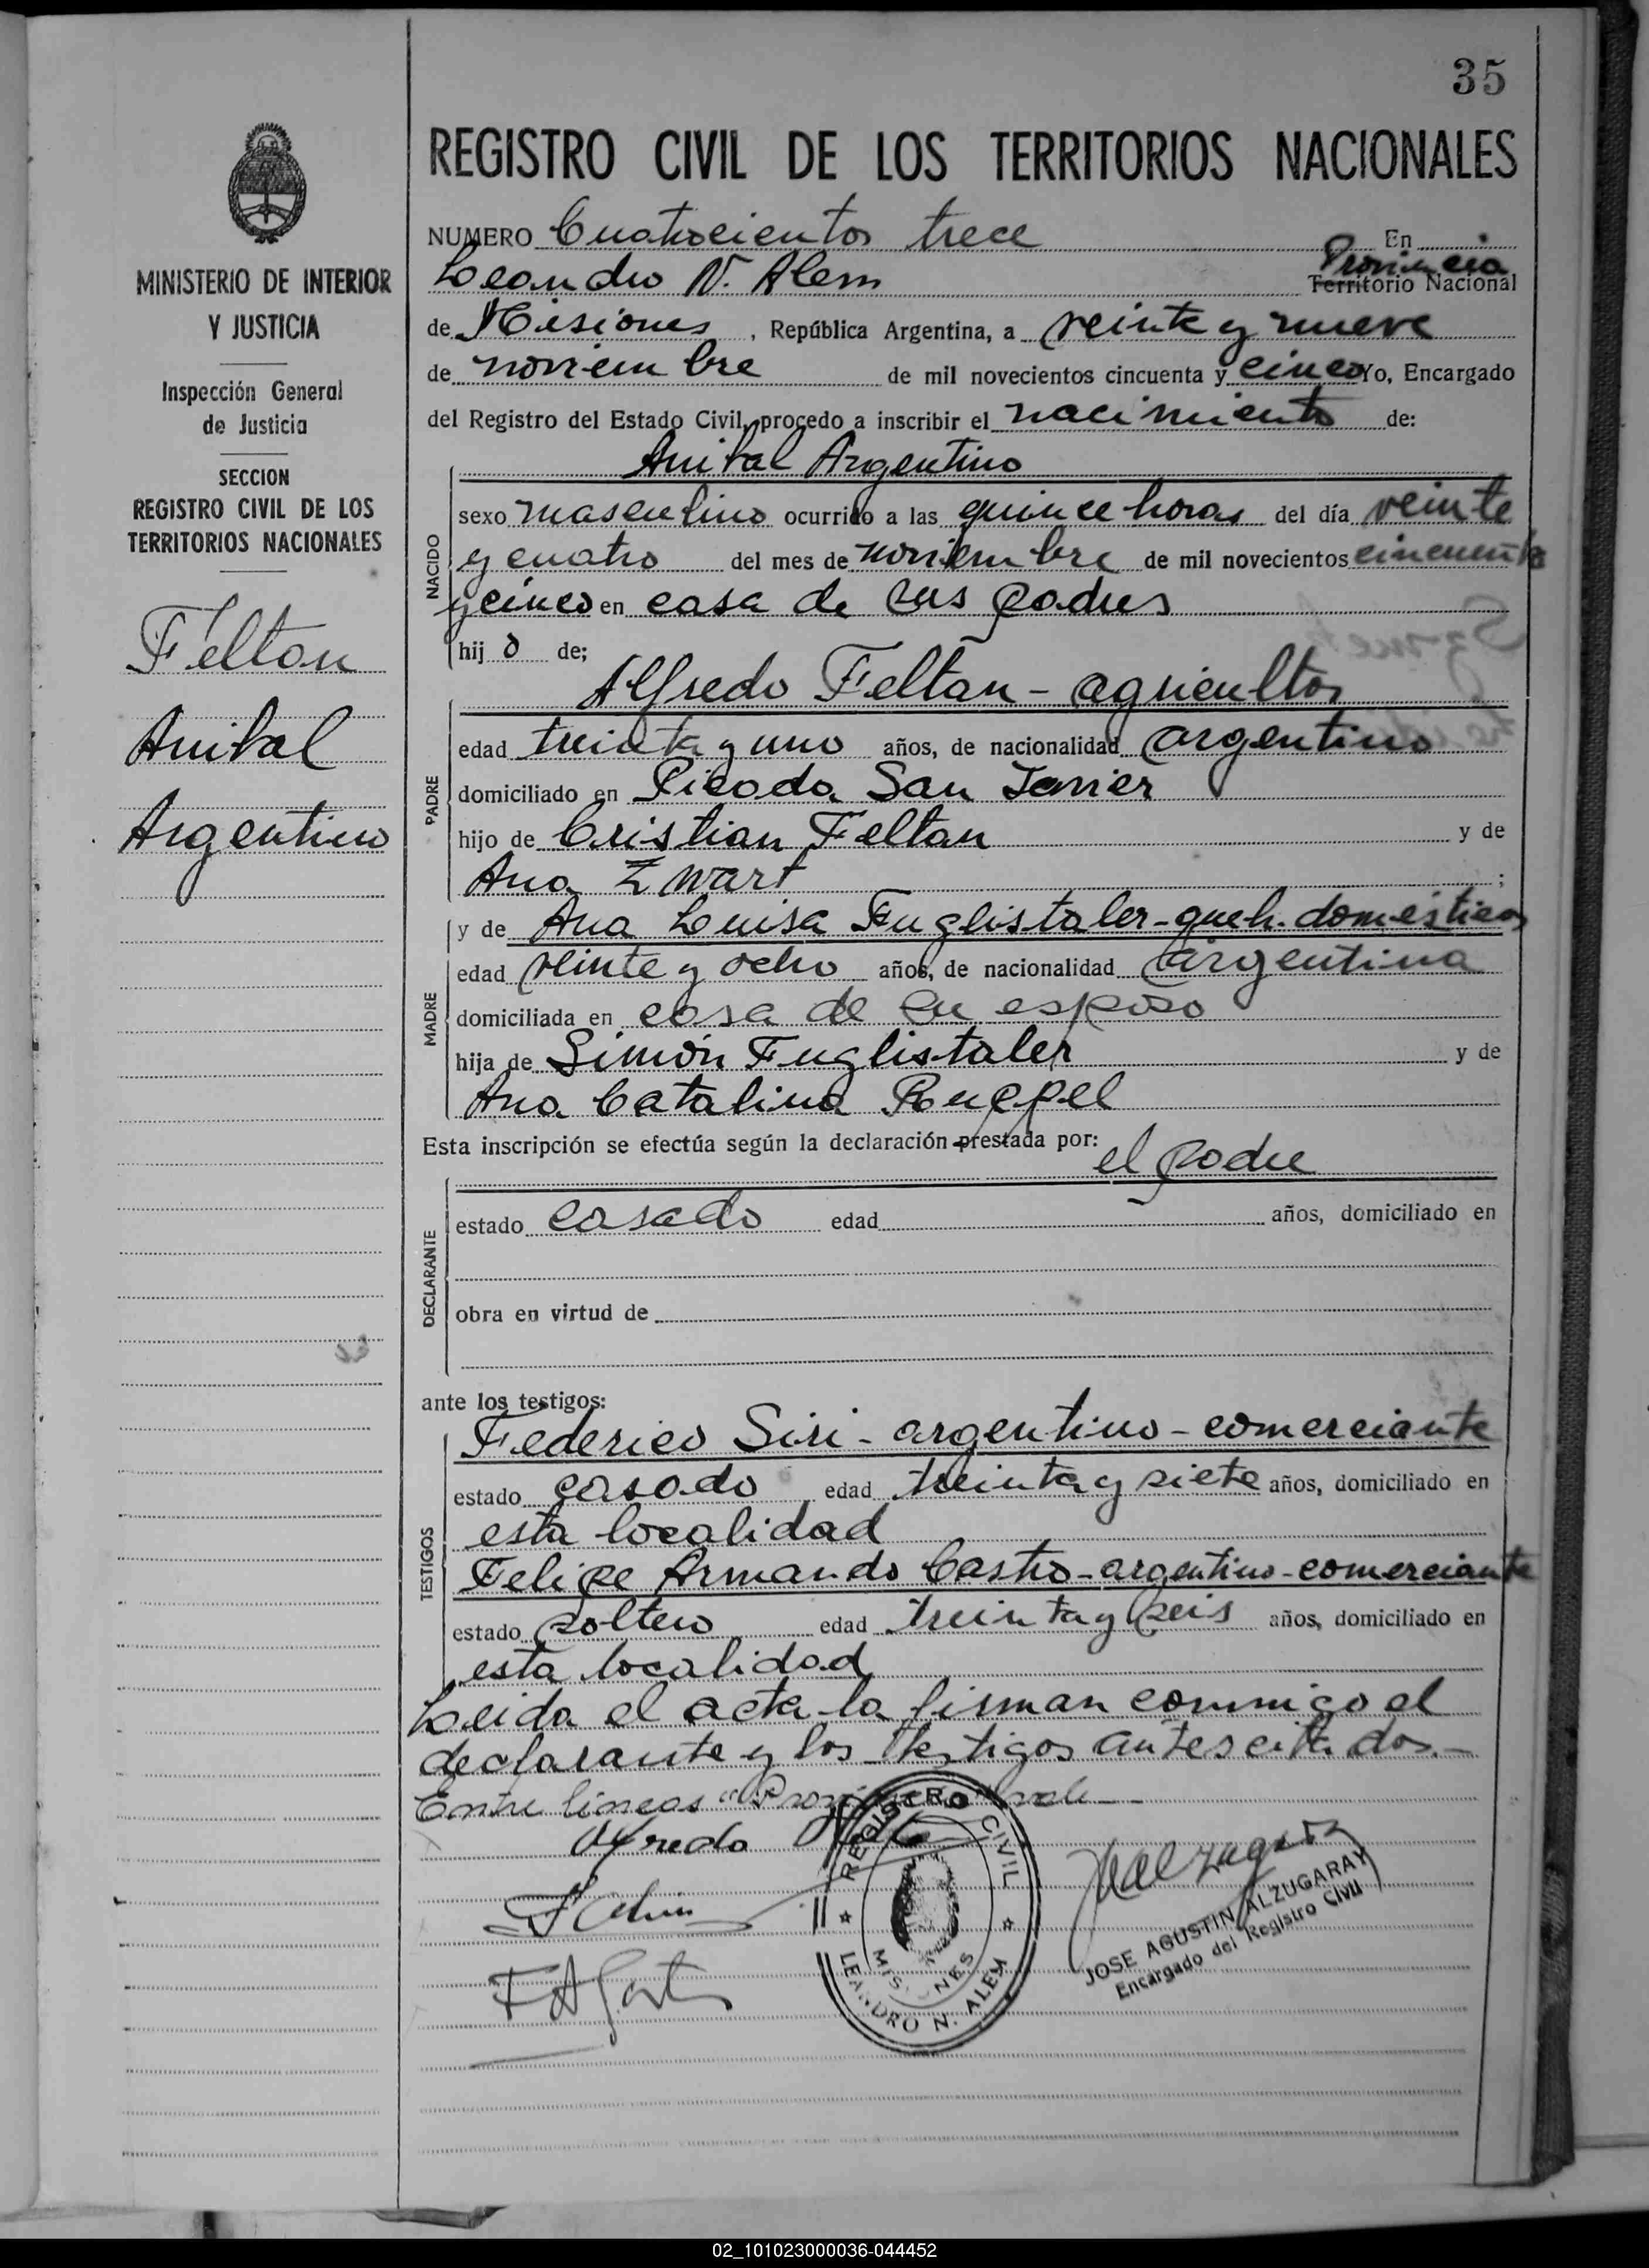 35
REGISTRO CIVIL DE LOS TERRITORIOS NACIONALES
MINISTERIO DE INTERIOR
Y JUSTICIA
Inspección General
de Justicia
SECCION
REGISTRO CIVIL DE LOS
TERRITORIOS NACIONALES
Feltan
Anibal
Argentino
NUMERO Cuatrocientos trece En
Leandro N. Alem Provincia Territorio Nacional
de Misiones, República Argentina, a veinte y nueve
de noviembre de mil novecientos cincuenta y cinco Yo, Encargado
del Registro del Estado Civil, procedo a inscribir el nacimiento de:
Anibal Argentino
NACIDO
sexo masculino ocurrido a las quince horas del día veinte
y cuatro del mes de noviembre de mil novecientos cincuenta
y cinco en casa de sus padres
hij o de;
Alfredo Feltan - agricultor
PADRE
edad treinta y uno años, de nacionalidad argentino
domiciliado en Picada San Javier
hijo de Cristian Feltan y de
Ana Zwart ;
y de Ana Luisa Fuglistaler - queh. domésticos
MADRE
edad veinte y ocho años, de nacionalidad argentina
domiciliada en casa de su esposo
hija de Simón Fuglistaler y de
Ana Catalina Ruppel
Esta inscripción se efectúa según la declaración prestada por:
el padre
DECLARANTE
estado casado edad años, domiciliado en
obra en virtud de
ante los testigos:
TESTIGOS
Federico Siri - argentino - comerciante
estado casado edad treinta y siete años, domiciliado en
esta localidad
Felipe Armando Castro - argentino - comerciante
estado soltero edad treinta y seis años, domiciliado en
esta localidad
Leida el acta la firman conmigo el
declarante y los testigos antes citados.-
Entre lineas "Provincia" vale
Alfredo
REGISTRO CIVIL
MISIONES
LEANDRO N. ALEM
JOSE AGUSTIN ALZUGARAY
Encargado del Registro Civil
02_101023000036-044452